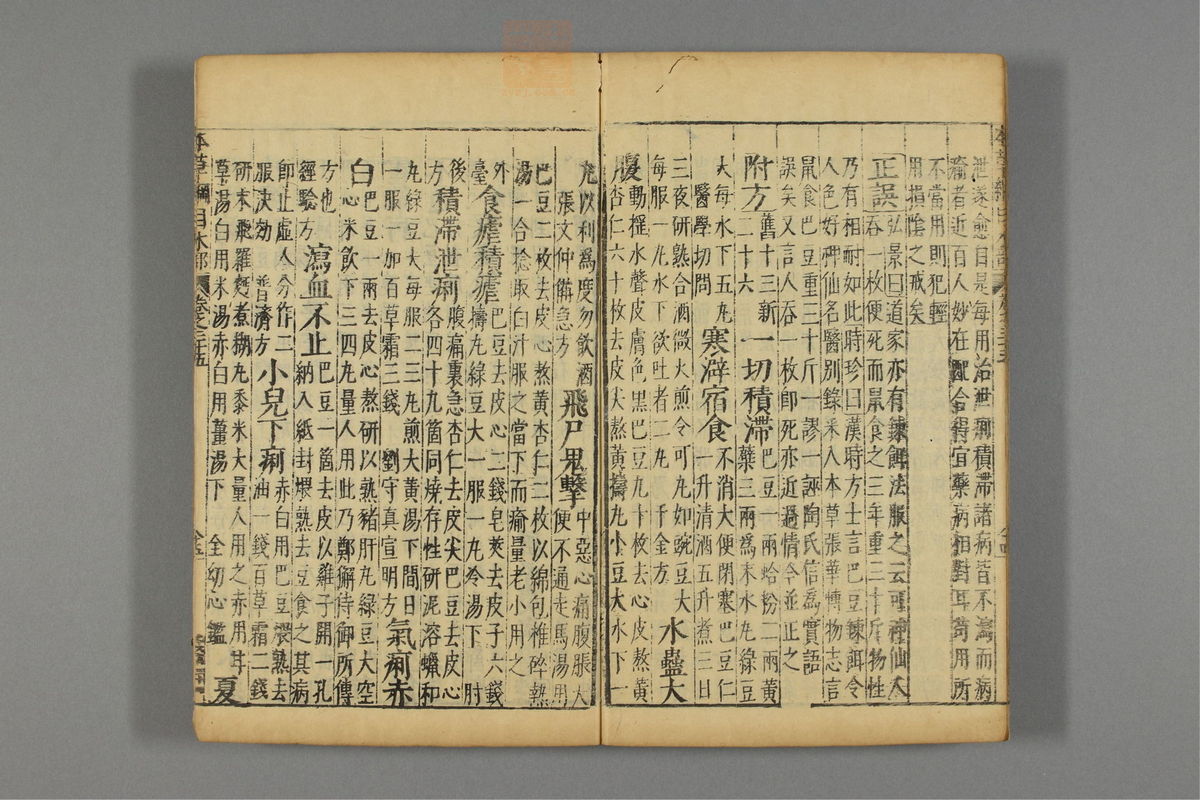 泄遂愈自是每用治泄痢積滯諸病皆不瀉而病
痊者近百人妙在配合得宜藥病相對耳苟用所
不當用則犯輕
用損陰之戒矣
正誤弘景曰道家亦有鍊餌法服之云可神仙人
吞一枚便死而鼠食之三年重三十斤物性
乃有相耐如此時珍曰漢時方士言巴豆鍊餌令
人色好神仙名醫別錄采入本草張華博物志言
鼠食巴豆重三十斤一謬一誣陶氏信爲實語
誤矣又言人吞一枚卽死亦近過情今並正之
附方舊十三新二十六一切積滯巴豆一兩蛤粉二兩黃蘗三兩爲末水丸綠豆
大每水下五丸醫學切問寒澼宿食不消大便閉塞巴豆仁一升清酒五升煮三日
三夜研熟合酒微火煎令可丸如豌豆大每服一丸水下欲吐者二丸千金方水蠱大
腹動搖水聲皮膚色黑巴豆九十枚去心皮熬黃杏仁六十枚去皮尖熬黃擣丸小豆大水下一
丸以利爲度勿飲酒張文仲備急方飛尸鬼擊中惡心痛腹脹大便不通走馬湯用
巴豆二枚去皮心熬黃杏仁二枚以綿包椎碎熱湯一合捻取白汁服之當下而愈量老小用之
外臺食瘧積瘧巴豆去皮心二錢皂莢去皮子六錢擣丸綠豆大一服一丸冷湯下肘
後方積滯泄痢腹痛裏急杏仁去皮尖巴豆去皮心各四十九箇同燒存性研泥溶蠟和
丸綠豆大每服二三丸煎大黃湯下間日一服一加百草霜三錢劉守真宣明方氣痢赤
白巴豆一兩去皮心熬研以熟豬肝丸綠豆大空心米飲下三四丸量人用此乃鄭獬侍御所傳
方也經驗方瀉血不止巴豆一箇去皮以雞子開一孔納入紙封煨熟去豆食之其病
卽止虛人分作二服決効普濟方小兒下痢赤白用巴豆煨熟去油一錢百草霜二錢
研末飛羅麪煮糊丸黍米大量人用之赤用甘草湯白用米湯赤白用薑湯下全幼心鑑夏
本草綱目木部 卷之三十五